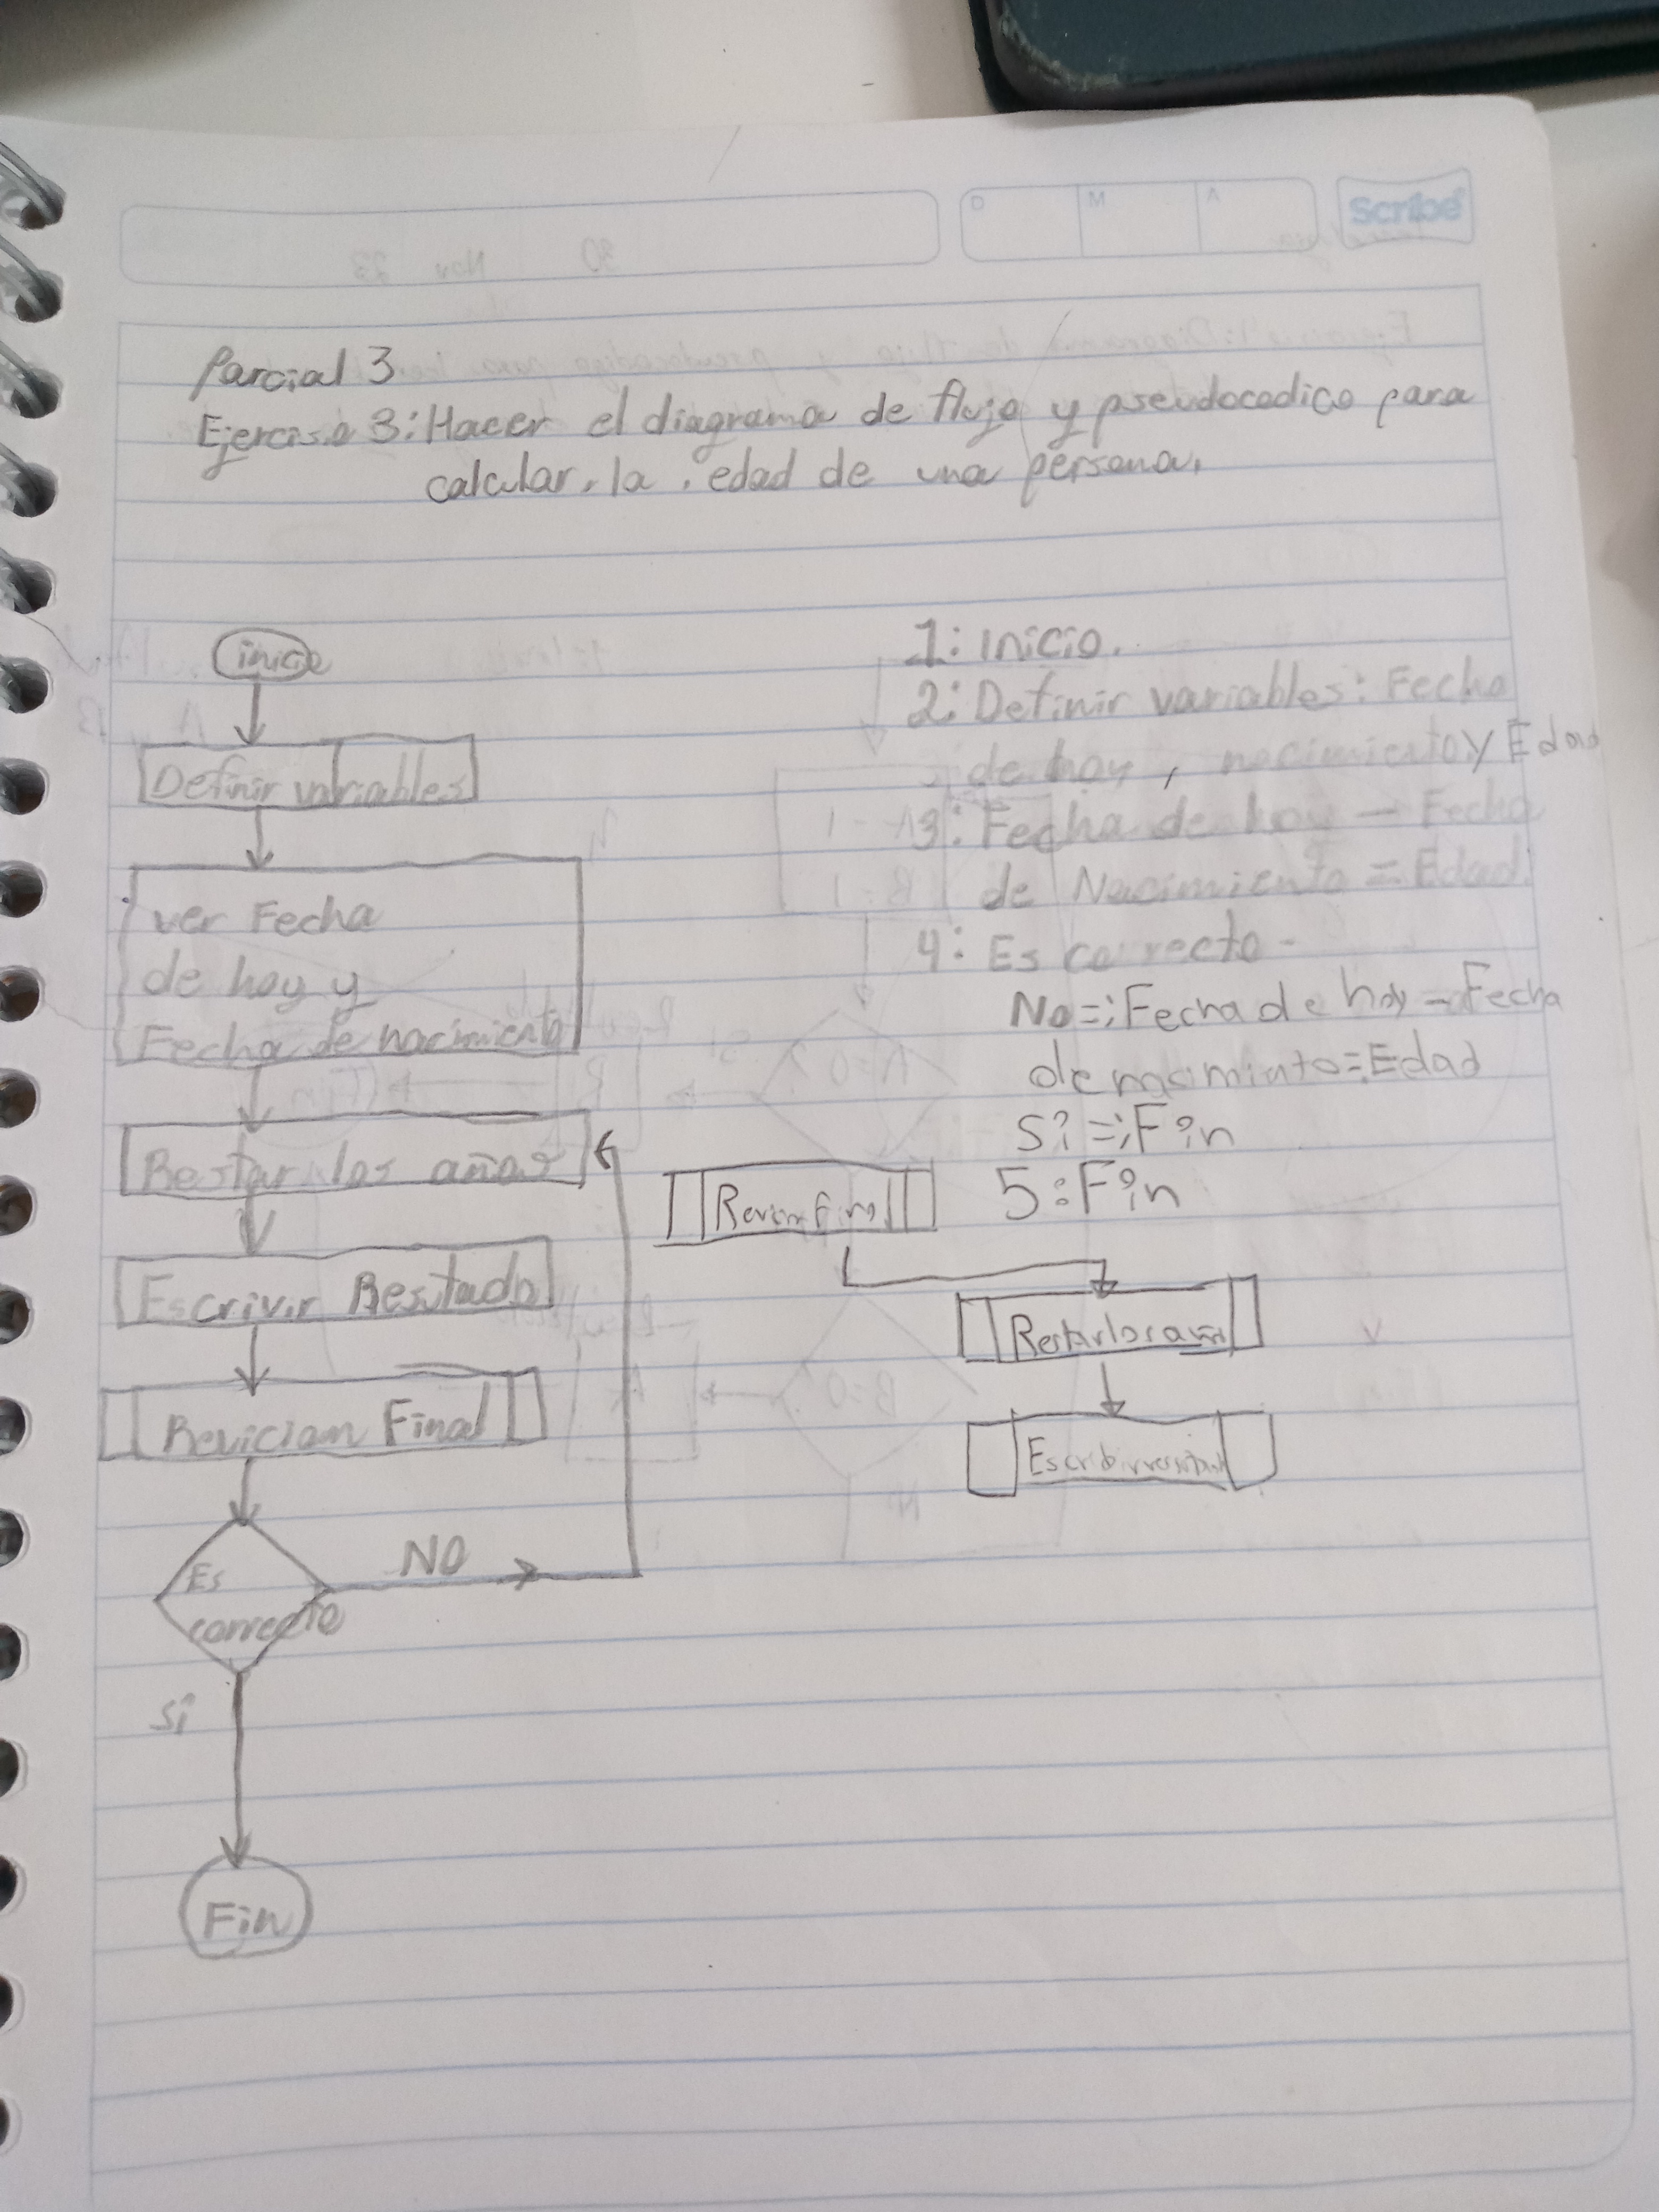 D M A
Scribe
Parcial 3
Ejerciso 3: Hacer el diagrama de flujo y pseudocodico para
calcular. la . edad de una persona.
inicio
Definir variables
ver Fecha
de hoy y
Fecha de nacimiento
Restar los años
Escrivir Resutado
Reviciom Final
Es
correcto
NO
Si
Fin
1: Inicio.
2: Definir variables: Fecha
de hoy, nacimiento y Edad
3: Fecha de hoy - Fecha
de Nacimiento = Edad.
4: Es correcto -
No =; Fecha de hoy - Fecha
de nacimiento = Edad
Si =; Fin
5: Fin
Final
Restar los años
Escribir
30 Nov 23